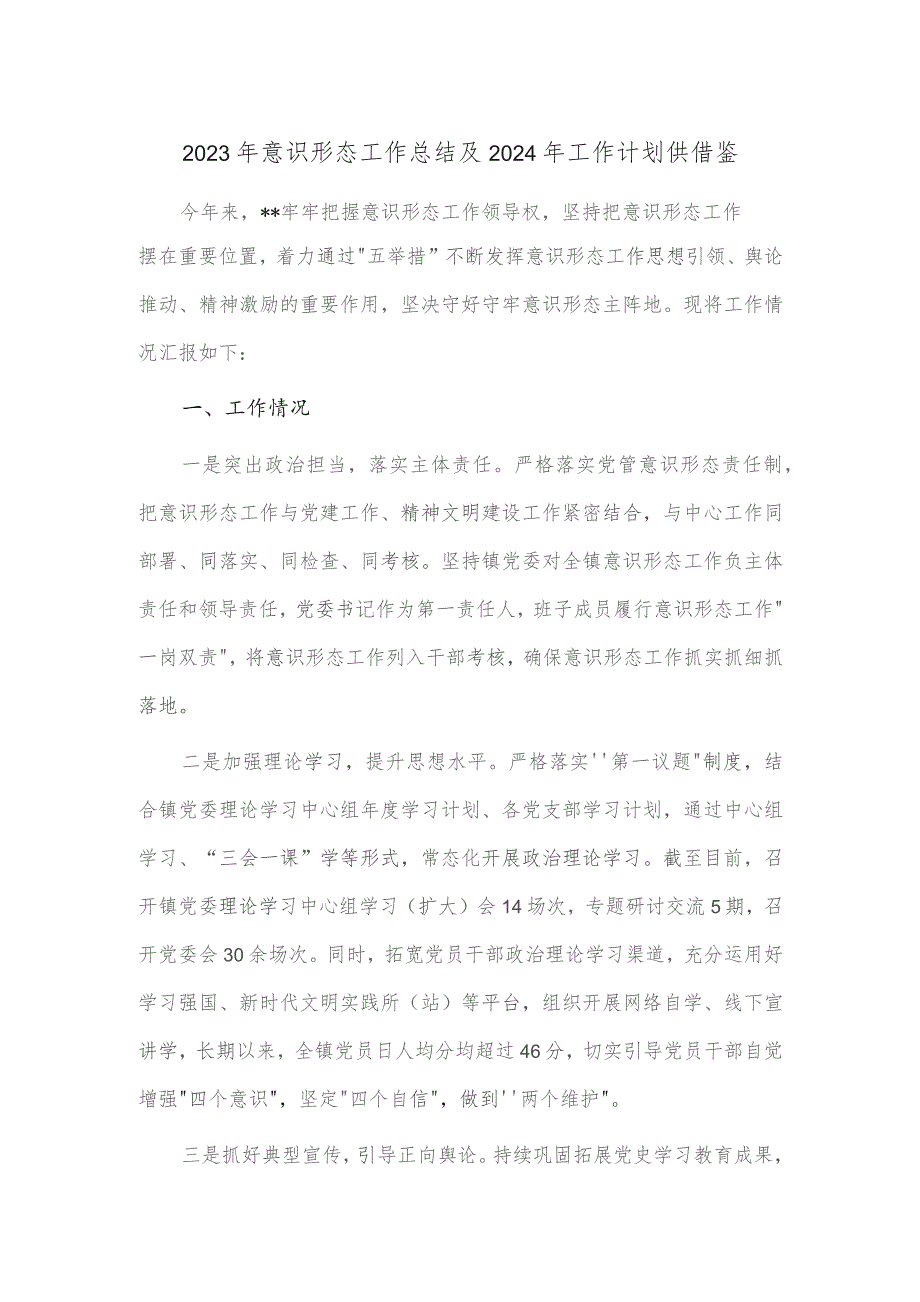 2023年意识形态工作总结及2024年工作计划供借鉴
今年来，**牢牢把握意识形态工作领导权，坚持把意识形态工作
摆在重要位置，着力通过"五举措”不断发挥意识形态工作思想引领、舆论
推动、精神激励的重要作用，坚决守好守牢意识形态主阵地。现将工作情
况汇报如下：
一、工作情况
一是突出政治担当，落实主体责任。严格落实党管意识形态责任制，
把意识形态工作与党建工作、精神文明建设工作紧密结合，与中心工作同
部署、同落实、同检查、同考核。坚持镇党委对全镇意识形态工作负主体
责任和领导责任，党委书记作为第一责任人，班子成员履行意识形态工作"
一岗双责"，将意识形态工作列入干部考核，确保意识形态工作抓实抓细抓
落地。
二是加强理论学习，提升思想水平。严格落实''第一议题"制度，结
合镇党委理论学习中心组年度学习计划、各党支部学习计划，通过中心组
学习、“三会一课”学等形式，常态化开展政治理论学习。截至目前，召
开镇党委理论学习中心组学习（扩大）会14场次，专题研讨交流5期，召
开党委会30余场次。同时，拓宽党员干部政治理论学习渠道，充分运用好
学习强国、新时代文明实践所（站）等平台，组织开展网络自学、线下宣
讲学，长期以来，全镇党员日人均分均超过46分，切实引导党员干部自觉
增强"四个意识"，坚定"四个自信"，做到''两个维护"。
三是抓好典型宣传，引导正向舆论。持续巩固拓展党史学习教育成果，